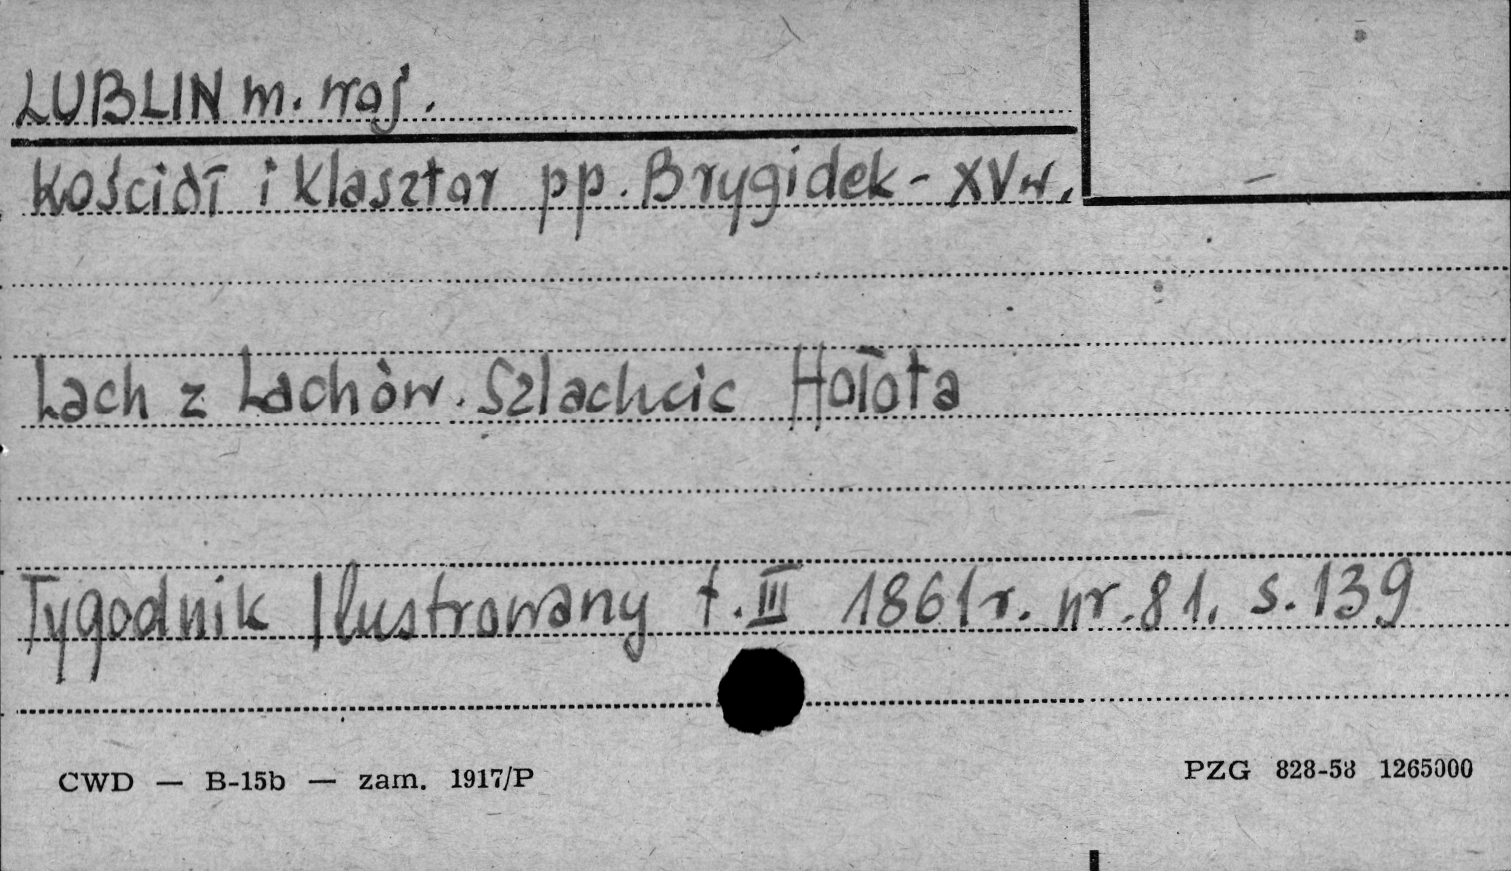 LUBLIN m. woj.
Kościół i klasztor pp. Brygidek - XV w.
Lach z Lachów. Szlachcic Hołota
Tygodnik Ilustrowany t. III 1861 r. nr. 81. s. 139
CWD — B-15b — zam. 1917/P
PZG 828-58 1265000